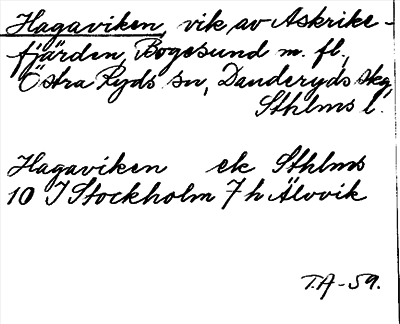 Hagaviken, vik av Askrike-
fjärden, Bogesund m. fl.,
Östra Ryds sn, Danderyds skg,
Sthlms l.
Hagaviken ek Sthlms
10 I Stockholm 7 h Älvvik
T.A-59.